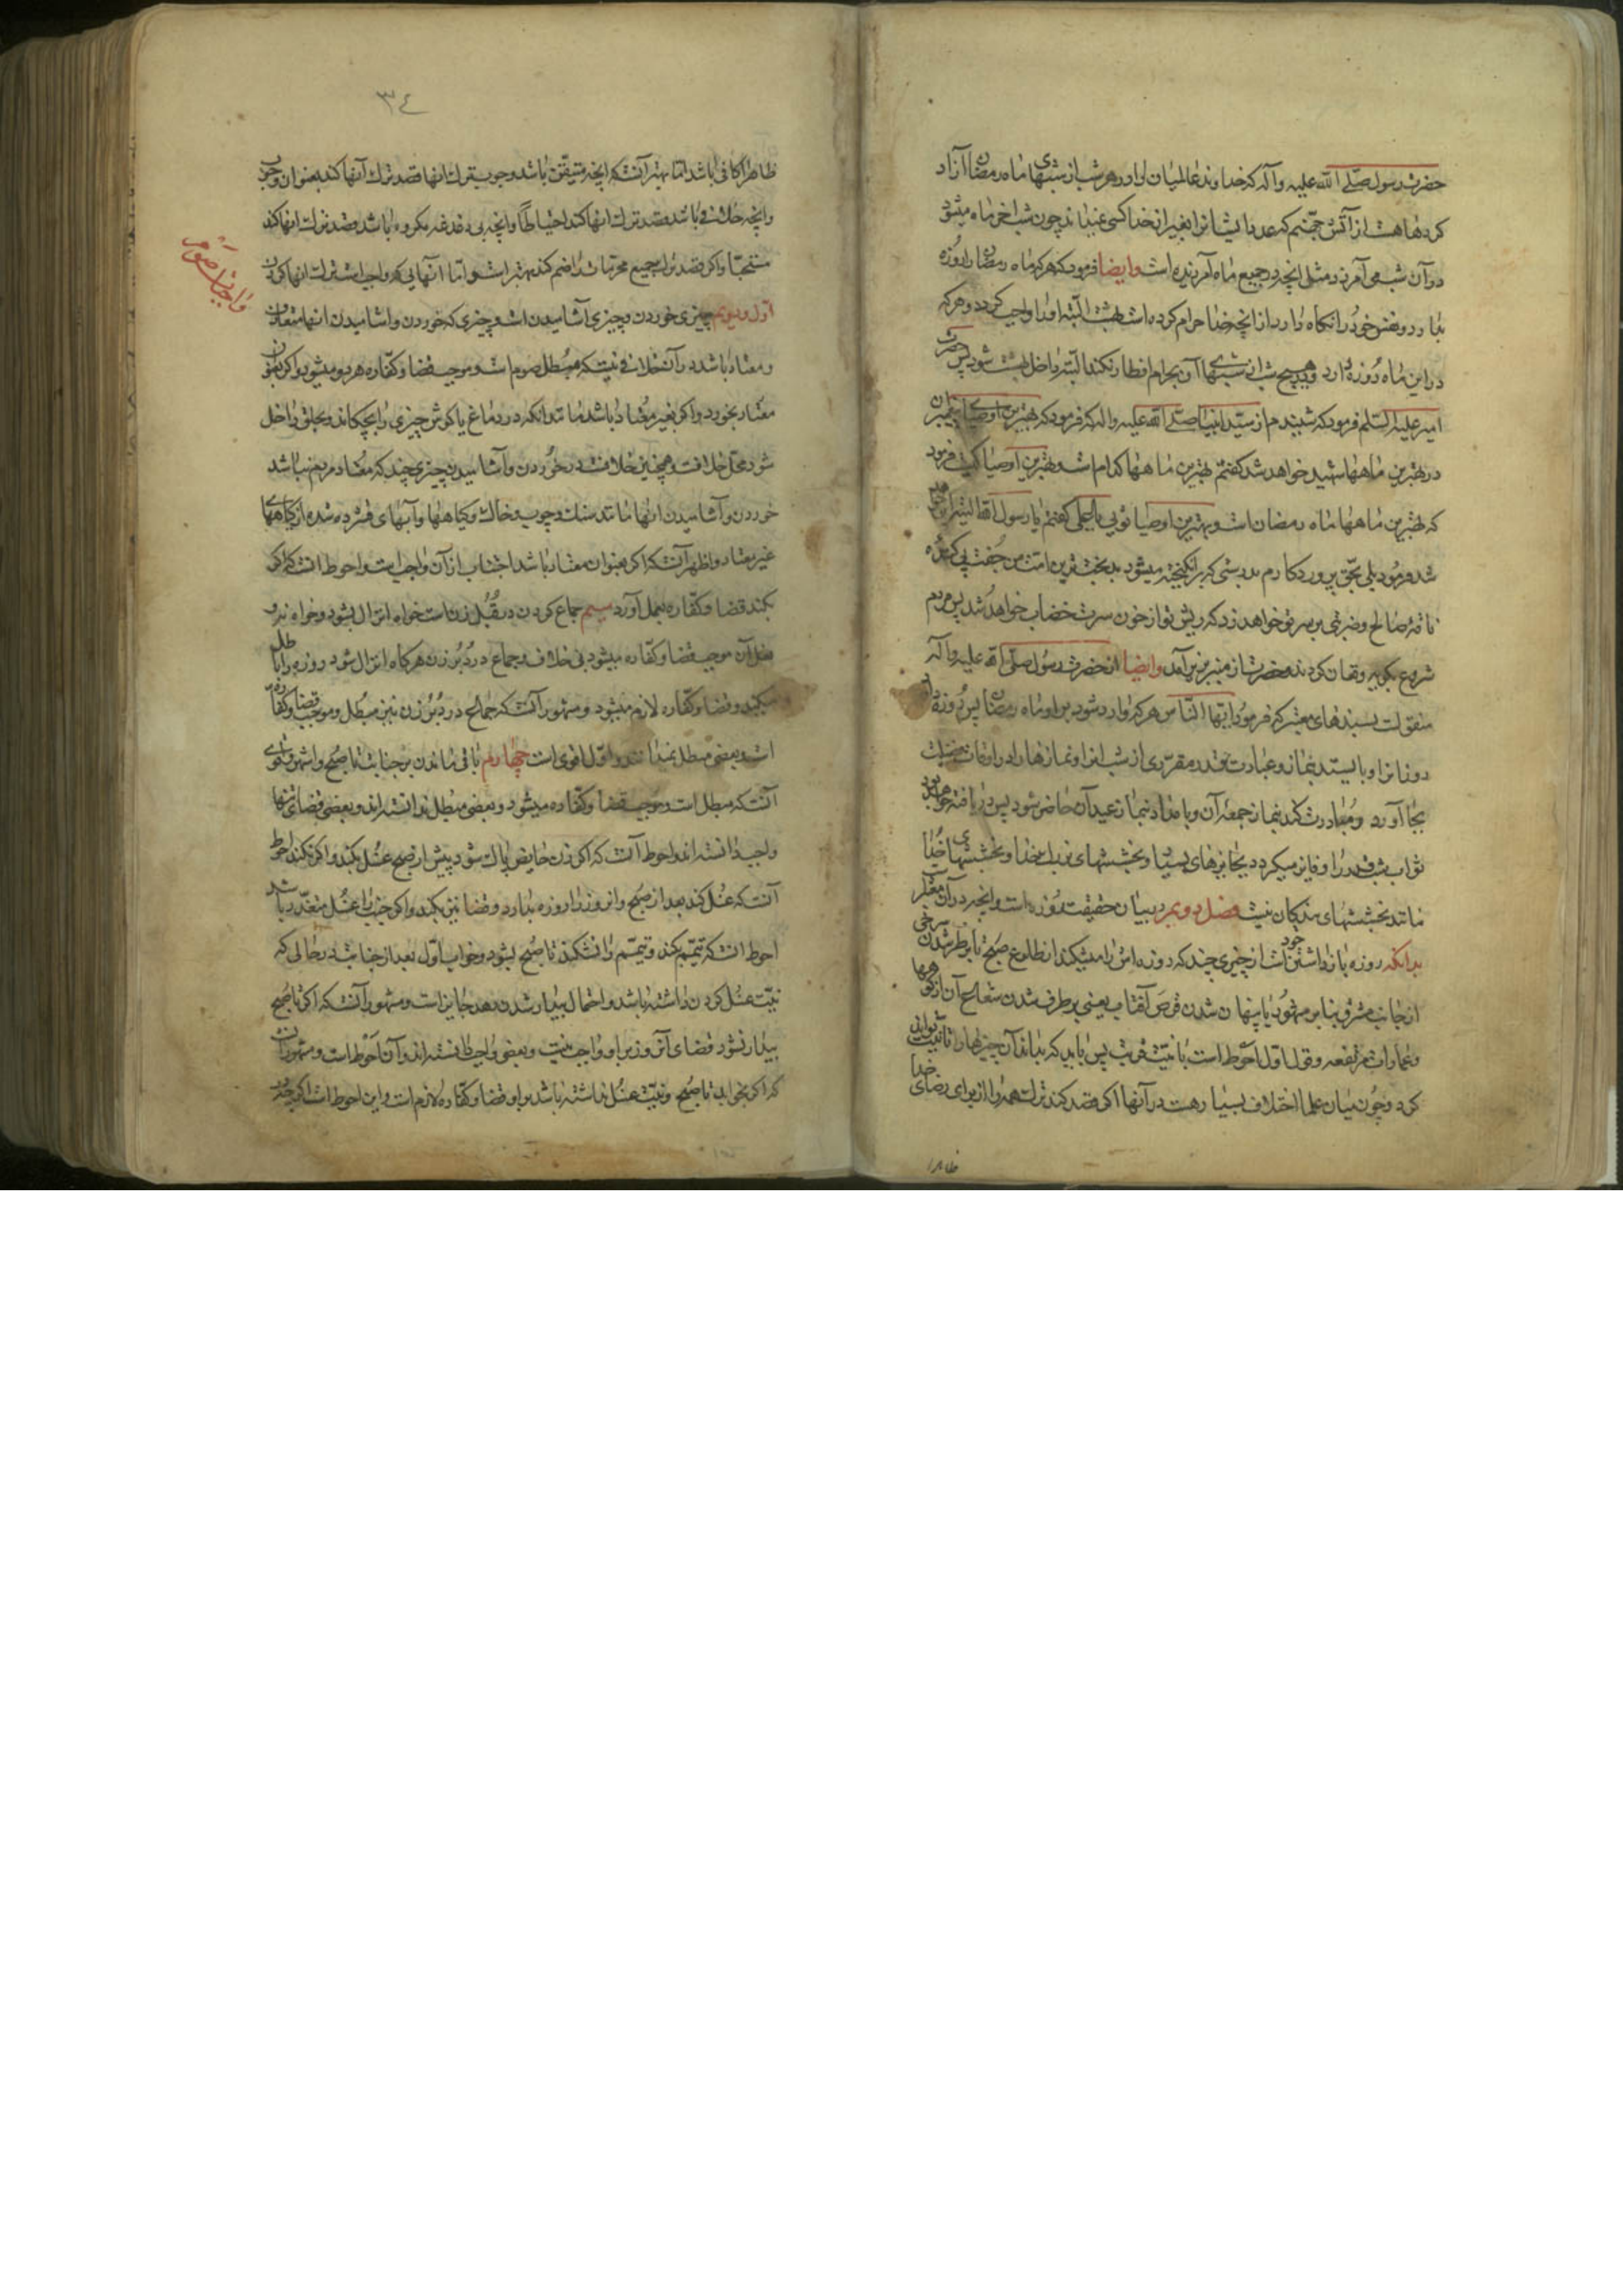 حضرت رسول صلّی الله علیه وآله که خداوند عالمیان را در هر شب از شبهای ماه رمضان آزاد
کردها هست از آتش جهنم که عدد ایشانرا بغیر از خدا کسی نمیداند چون شب آخر ماه میشود
در آن شب می آمرزد مثل آنچه در جمیع ماه آمرزیده است وایضا فرمود که هر که ماه رمضان را روزه
بدارد و نفس خود را نگاه دارد از آنچه خدا حرام کرده است بهشت البته او را واجب گردد و هر که
در این ماه روزه دارد و هیچ شب از شبهای آن بحرام افطار نکند البته داخل بهشت شود پس حضرت
امیر علیه السلم فرمود که شنیدم از سید انبیا صلّی الله علیه واله که فرمود که بهترین اوصیای پیغمبران
در بهترین ماهها شهید خواهد شد گفتم بهترین ماهها کدام است و بهترین اوصیا کیست فرمود
که بهترین ماهها ماه رمضان است و بهترین اوصیا توئی یا علی گفتم یا رسول الله البته این خواهد
شد فرمود بلی بحق پروردگارم بدرستی که برانگیخته میشود بدبخت ترین امت من جفت پی کننده
ناقه صالح و ضربتی بر سر تو خواهد زد که ریش تو از خون سرت خضاب خواهد شد پس مردم
شروع بگریه وفغان کردند و حضرت از منبر بزیر آمد وایضا از حضرت رسول صلّی الله علیه واله
منقولست بسندهای معتبر که فرمود ایّها النّاس هر که وارد شود بر او ماه رمضان پس روزه دارد
روزانرا و بایستد بنماز و عبادت بقدر مقرری از شب انرا و نمازها را در اوقات فضیلت
بجا آورد و مبادرت کند بنماز جمعه آن و بامداد بنماز عید آن حاضر شود پس دریافته خواهد بود
ثواب شب قدر را و فایز میگردد بجایزهای بسیار و بخششهای بزرگ خدا و بخششهای خدا
مانند بخششهای بندگان نیست فصل دویم در بیان حقیقت روزه است و آنچه در آن معتبر است
بدانکه روزه بازداشتن خود است از چیزی چند که روزه اش را میشکند از طلوع صبح تا برطرف شدن سرخی
از جانب مشرق بنابر مشهور یا پنهان شدن قرص آفتاب یعنی برطرف شدن شعاع آن از کوهها
و عمارات مرتفعه و قول اول احوط است با نیت قربت پس باید که بداند آن چیزها را تا نیت تواند
کرد و چون میان علما اختلاف بسیار هست در آنها اگر قصد کند ترک همه را از برای رضای خدا
ظاهرا
٣٤
ظاهرا کافی باشد اما بهتر آنستکه آنچه متیقن باشد وجوب ترک انها قصد ترک آنها کند بعنوان وجوب
وانچه خلافی باشد قصد ترک انها کند احتیاطا وانچه بی دغدغه مکروه باشد قصد ترک انها کند
مستحبا واگر قصد ترک جمیع محرمات را ضم کند بهتر است و اما آنهایی که واجب است ترک انها کردن
اول و دویم چیزی خوردن و چیزی آشامیدن است و چیزی که خوردن و اشامیدن انها متعارف
و معتاد باشد در آن خلافی نیست که مبطل صوم است و موجب قضا و کفّاره هر دو میشود و اگر بعنوان
معتاد بخورد و اگر بغیر معتاد باشد مانند انکه در دماغ یا گوش چیزی را بچکاند و بحلق داخل
شود محل خلافست و همچنین خلافست در خوردن و آشامیدن چیزی چند که معتاد مردم نباشد
خوردن و آشامیدن انها مانند سنگ و چوب و خاک و گیاهها و آبهای فشرده شده از گیاههای
غیر معتاد و اظهر آنستکه اگر بعنوان معتاد باشد اجتناب از آن واجبست و احوط انستکه اگر
بکند قضا و کفّاره بعمل آورد سیم جماع کردن در قُبُل زن است خواه انزال بشود و خواه نشود
فعل آن موجب قضا و کفّاره میشود بی خلاف و جماع در دُبُر زن هرگاه انزال شود روزه را باطل
میکند و قضا و کفّاره لازم میشود و مشهور آنستکه جماع در دُبُر زن نیز مبطل و موجب قضا و کفاره
است و بعضی مبطل نمیدانند و اول اقوی است چهارم باقی ماندن بر جنابت تا صبح و اشهر و اقوی
آنست که مبطل است و موجب قضا و کفّاره میشود و بعضی مبطل ندانسته اند و بعضی قضای تنها
واجب دانسته اند و احوط آنست که اگر زن حایض پاک شود پیش از صبح غسل بکند و اگر نکند احوط
آنست که غسل کند بعد از صبح و انروز را روزه بدارد و قضا نیز بکند و اگر جنب را غسل متعذر باشد
احوط انستکه تیمّم بکند و تیمّم را نشکند تا صبح بشود و خواب اول بعد از جنابت در حالی که
نیّت غسل کردن داشته باشد و احتمال بیدار شدن بدهد جایز است و مشهور آنستکه اگر تا صبح
بیدار نشود قضای آنروز بر او واجب نیست و بعضی واجب دانسته اند و آن احوط است و مشهور آنست
که اگر بخوابد تا صبح و نیّت غسل نداشته باشد بر او قضا و کفّاره لازم است و این احوط است اگرچه در
واجبات صوم